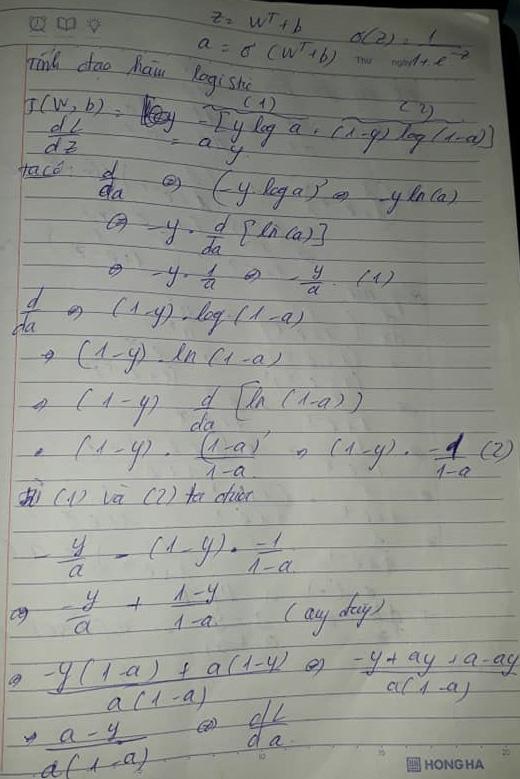 z = Wᵀ + b
a = σ (Wᵀ + b) σ(z) = 1/(1 + e^-z)
Thứ ngày
Tính đạo hàm logistic
(1) (2)
J(W, b) = -[y log a + (1-y) log(1-a)]
dL/dz = a y
ta có: d/da ⇔ (-y log a)' ⇔ -y ln(a)
⇔ -y . d/da [ln(a)]
⇔ -y . 1/a ⇔ -y/a (1)
d/da ⇔ (1-y) . log (1-a)
⇒ (1-y) . ln (1-a)
⇒ (1-y) d/da [ln (1-a)]
. (1-y) . (1-a)'/(1-a) ⇒ (1-y) . -1/(1-a) (2)
(1) và (2) ta được
- y/a - (1-y) . -1/(1-a)
⇔ -y/a + (1-y)/(1-a)
⇒ (-y(1-a) + a(1-y))/(a(1-a)) ⇔ (-y + ay + a - ay)/(a(1-a))
⇒ (a-y)/(a(1-a)) ⇔ dL/da
HONG HA